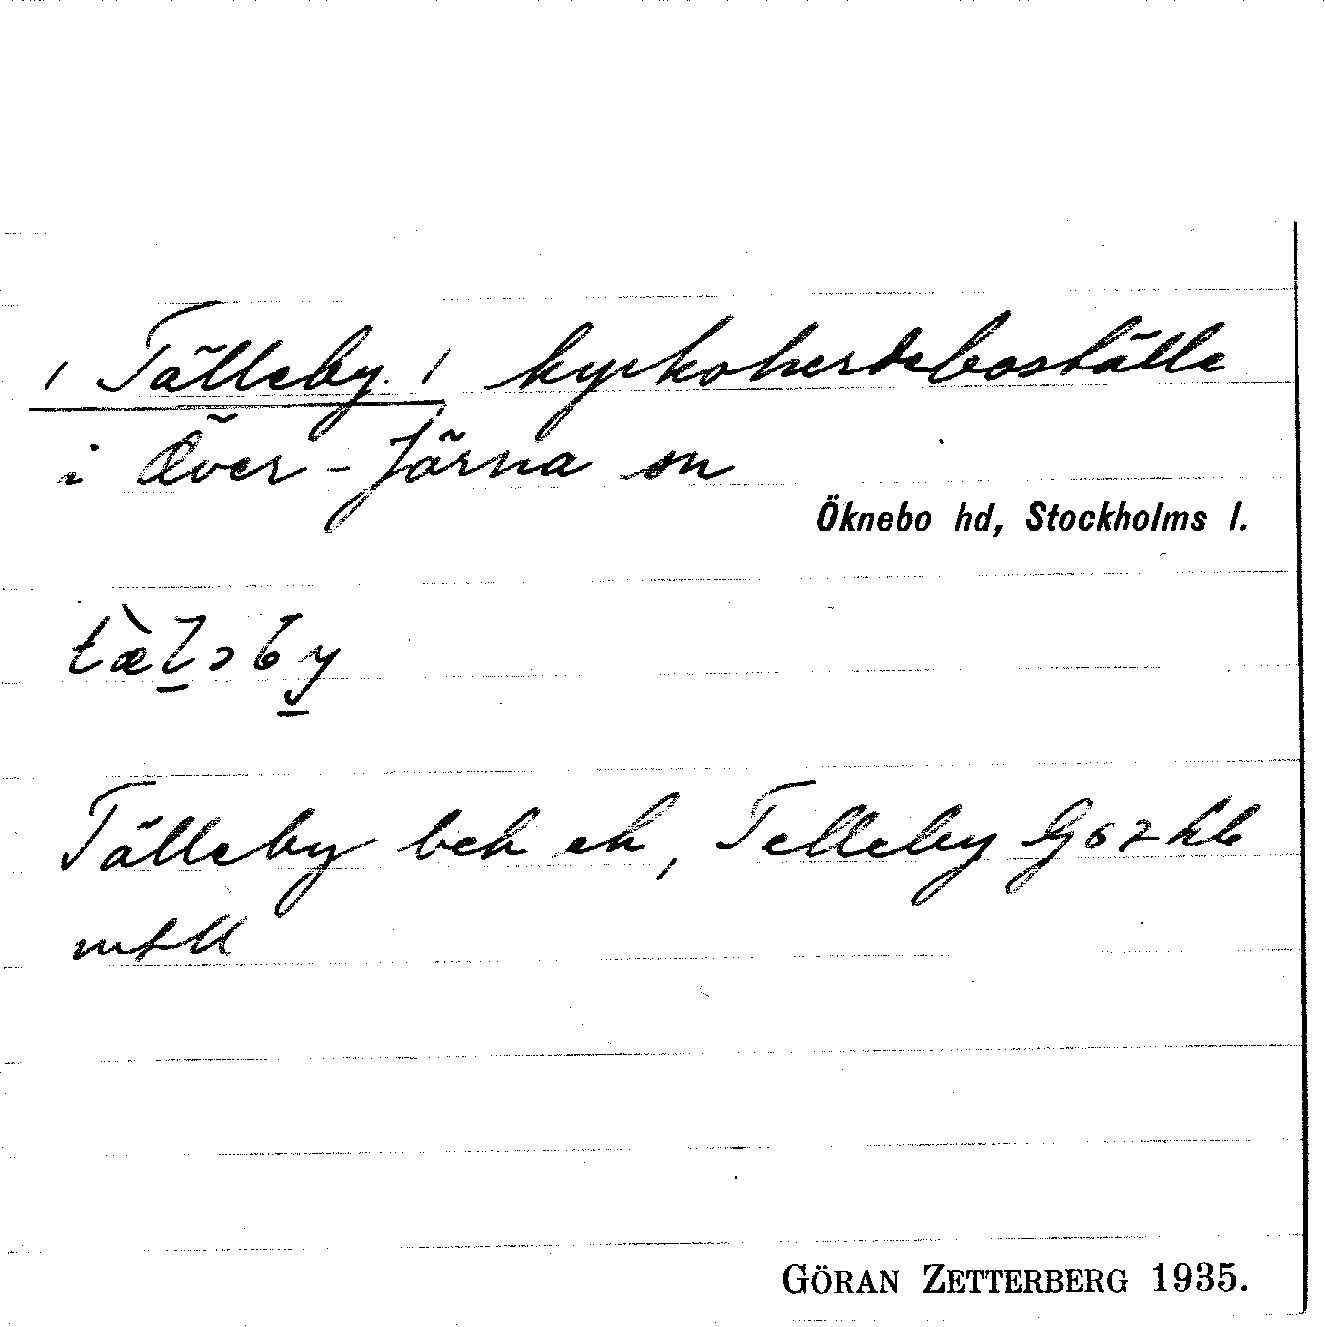 / Tälleby. / kyrkoherdeboställe
i Över-Järna sn
Öknebo hd, Stockholms l.
tæ̀l̠əby̠
Tälleby bek ek, Telleby Gözkb
mtll
GÖRAN ZETTERBERG 1935.